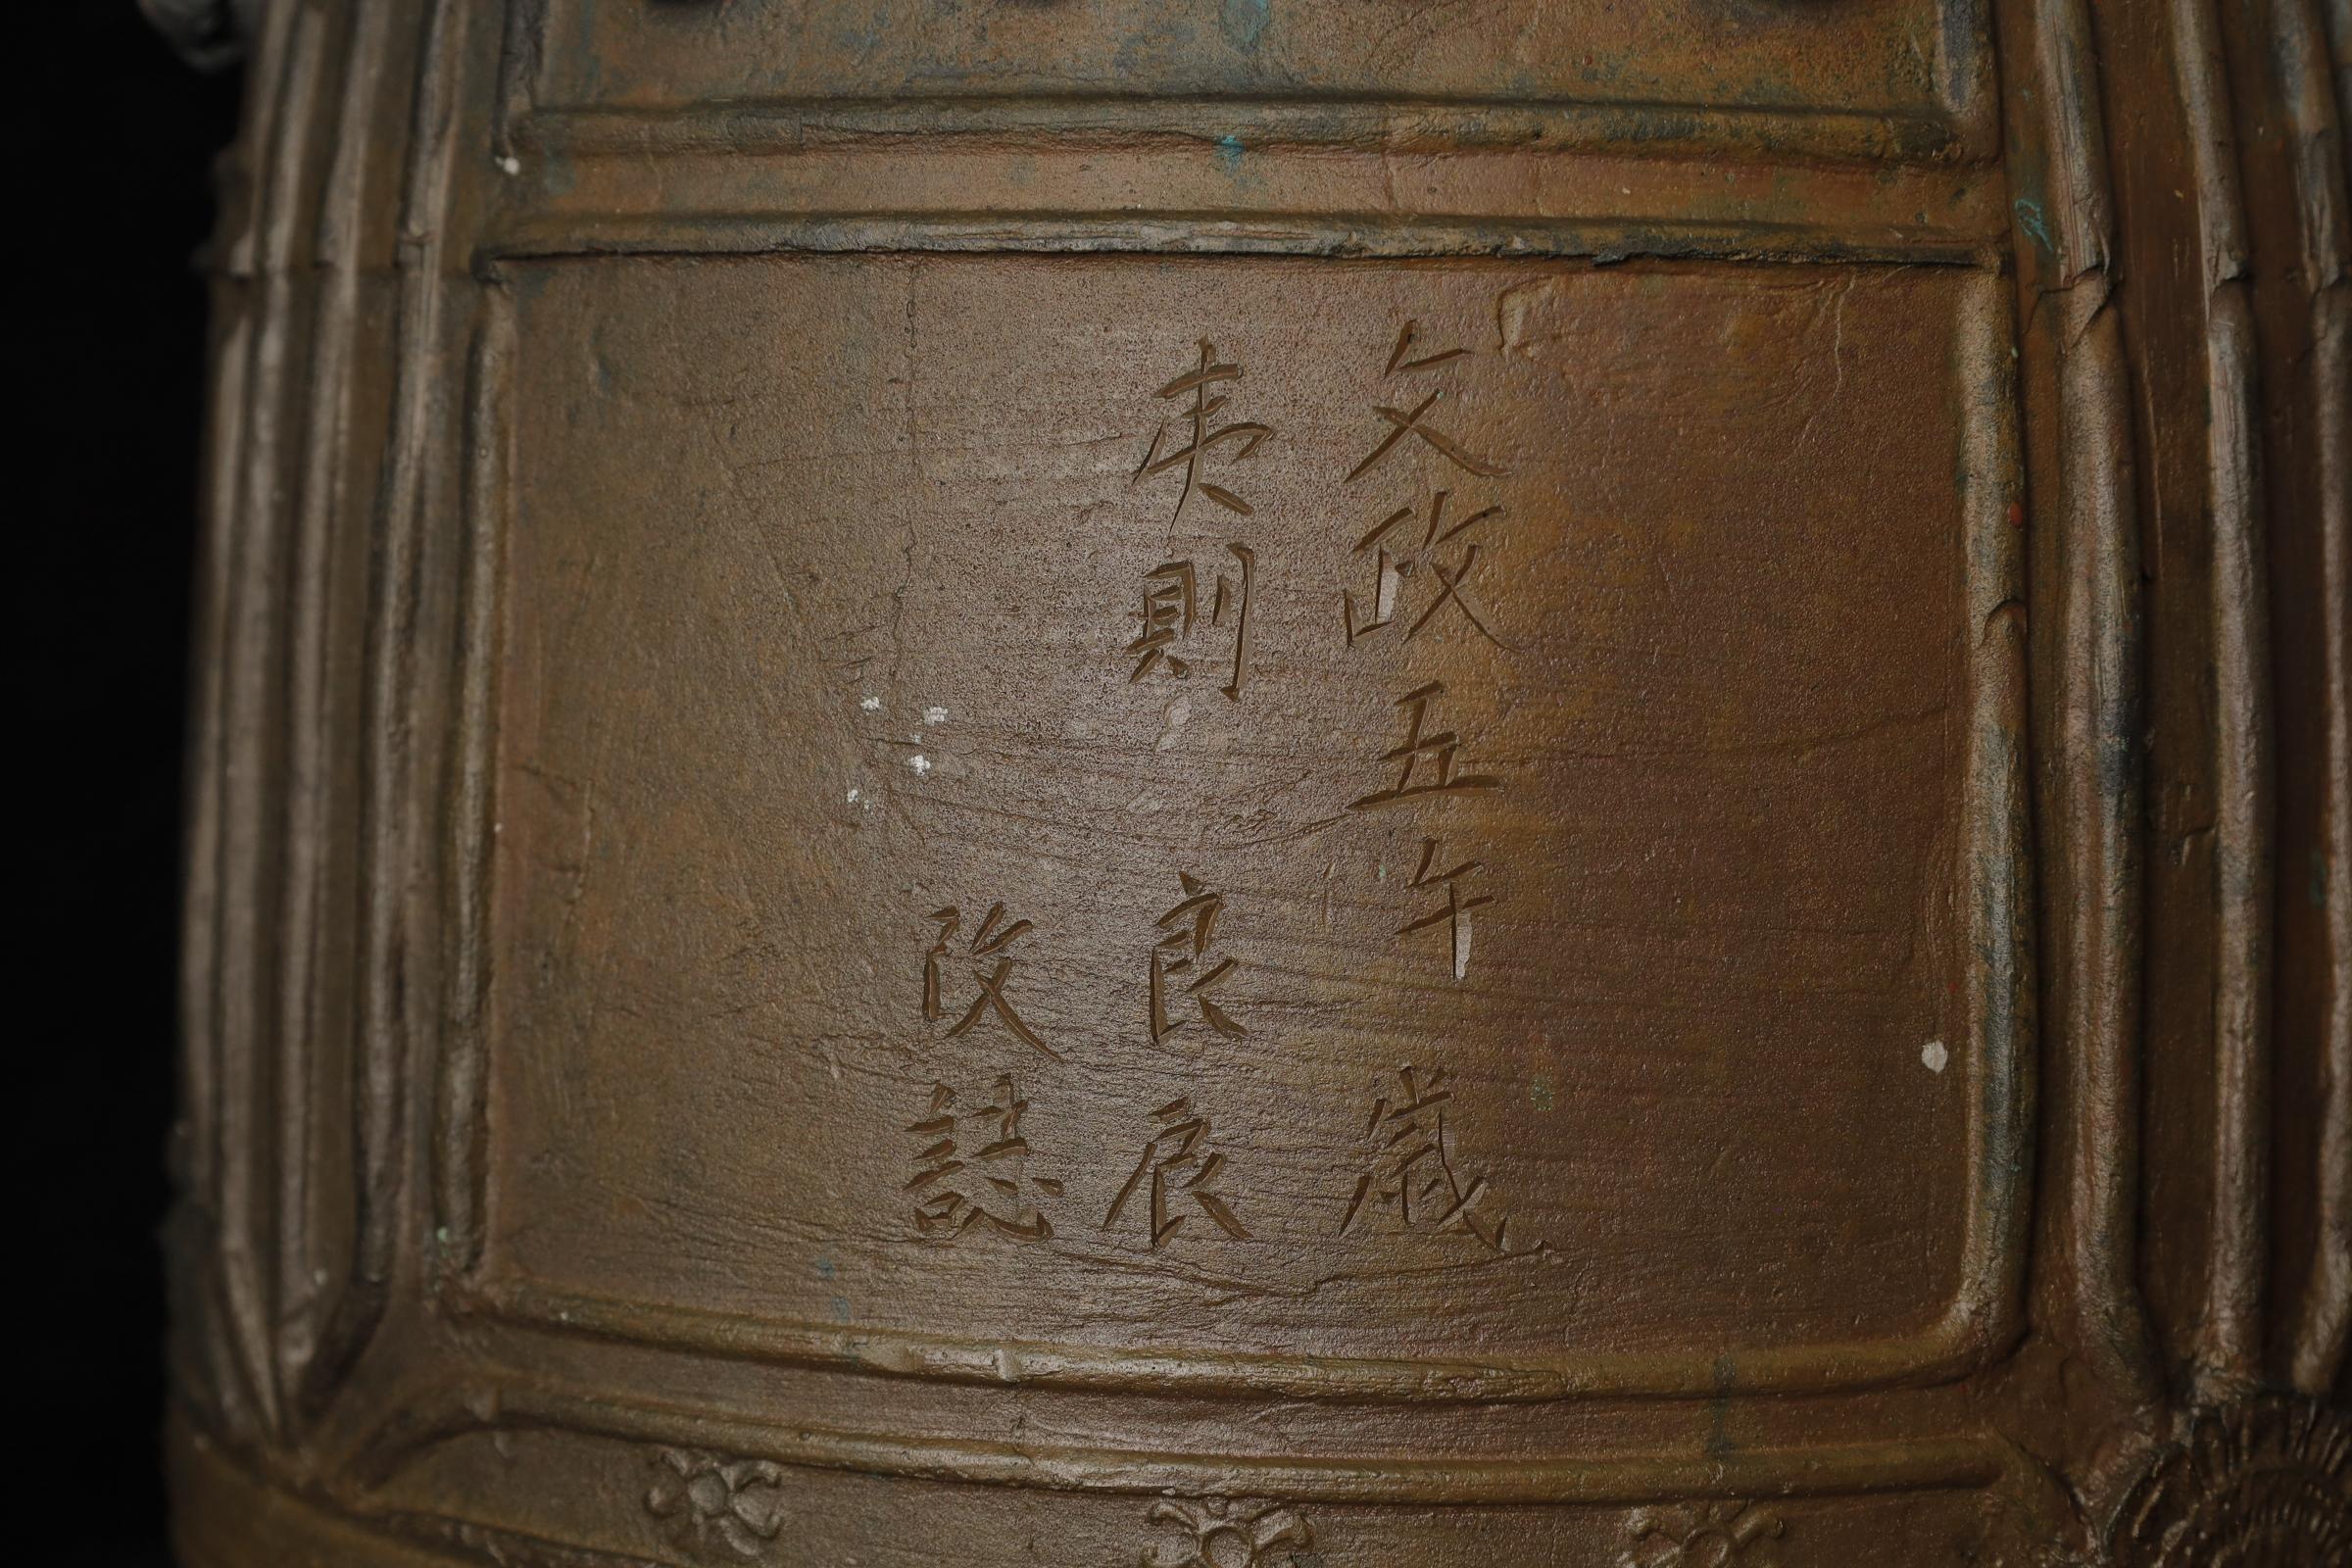 文政五午歳
夷則良辰
改誌